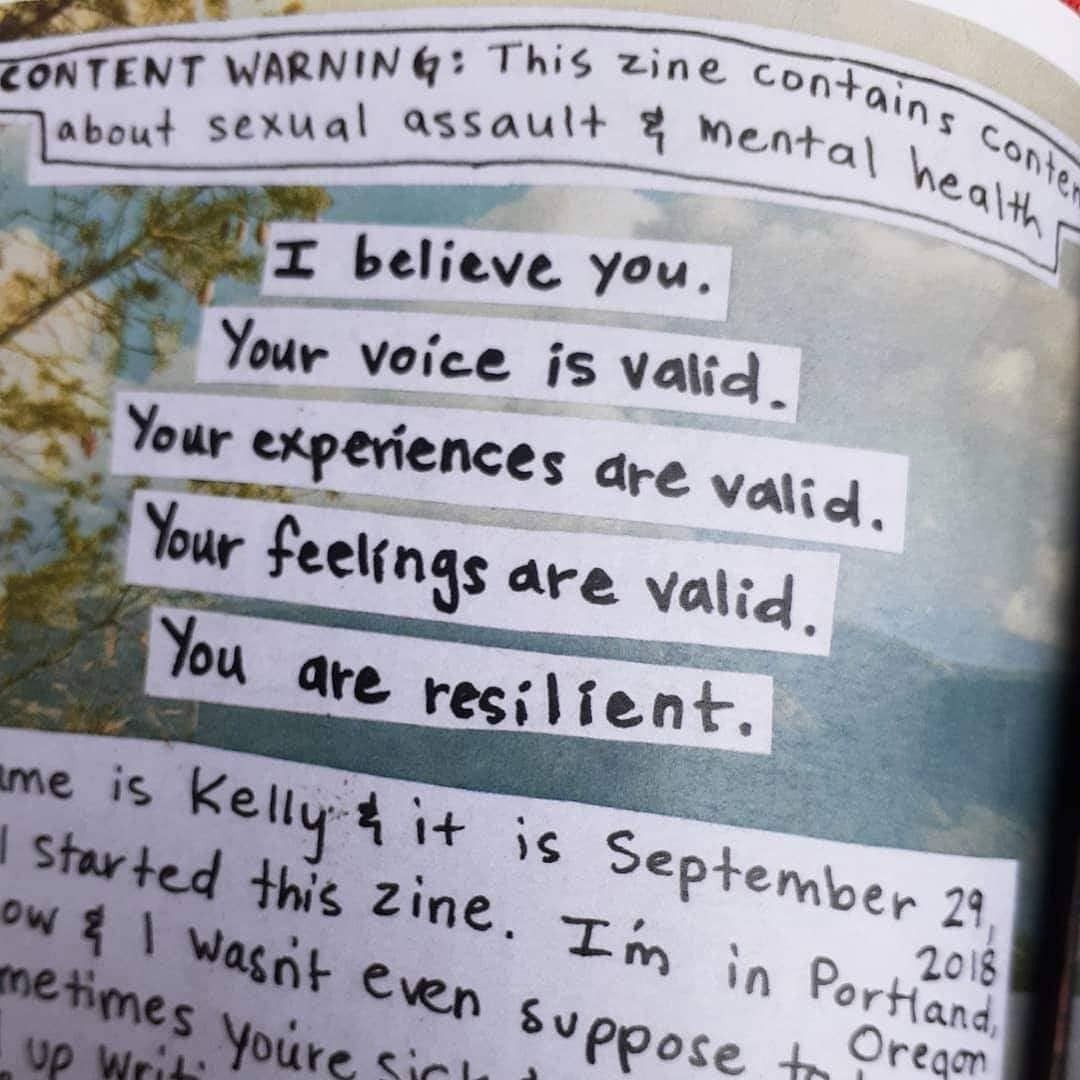 CONTENT WARNING: This zine contains
about sexual assault & mental health
I believe you.
Your voice is valid.
Your experiences are valid.
Your feelings are valid.
You are resilient.
is Kelly & it is September 29,
2018
I started this zine. I'm in Portland,
Oregon
& I wasn't even suppose to
you're
up